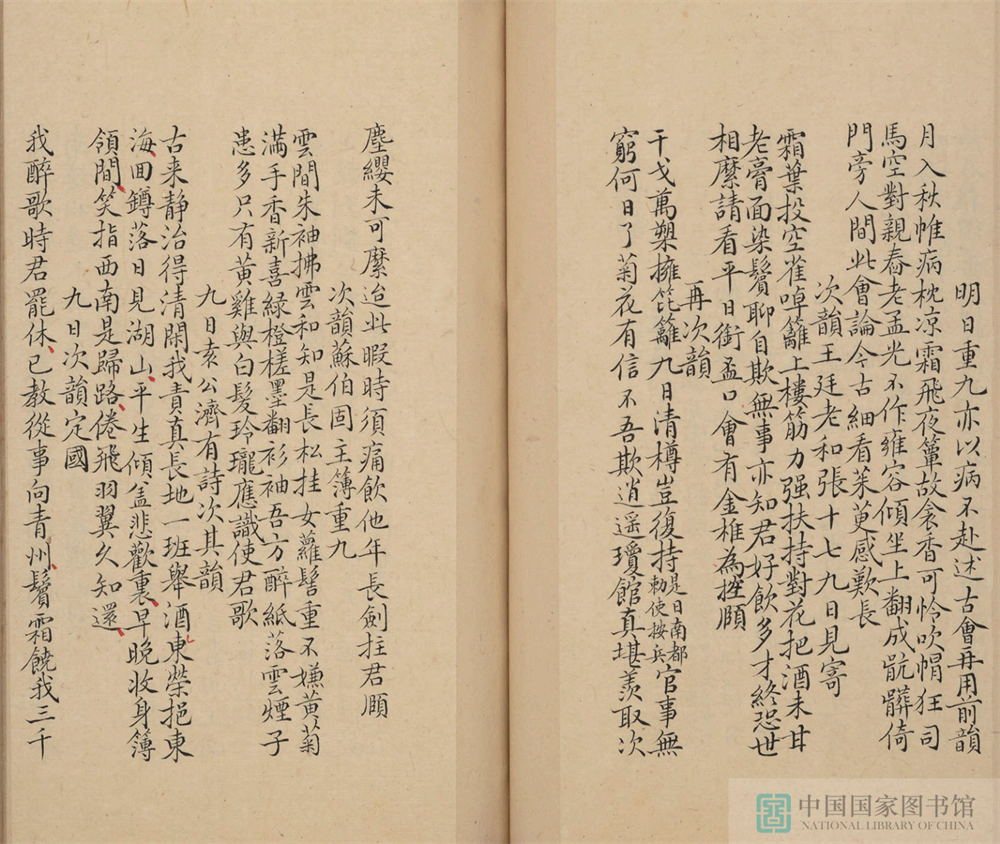 明日重九亦以病不赴述古會再用前韻
月入秋帷病枕凉霜飛夜簟故衾香可怜吹帽狂司
馬空對親舂老孟光不作雍容傾坐上翻成骯髒倚
門旁人間此會論今古細看茱萸感歎長
次韻王廷老和張十七九日見寄
霜葉投空雀啅籬上樓筋力强扶持對花把酒未甘
老膏面染鬚聊自欺無事亦知君好飲多才終恐世
相縻請看平日銜盃口會有金椎為控頤
再次韻
干戈萬槊擁笓籬九日清樽豈復持是日南都勑使按兵官事無
窮何日了菊花有信不吾欺逍遥瓊館真堪羡取次
塵纓未可縻迨此暇時須痛飲他年長劍拄君頤
次韻蘇伯固主簿重九
雲間朱袖拂雲和知是長松挂女蘿髻重不嫌黄菊
满手香新喜緑橙槎墨翻衫袖吾方醉紙落雲煙子
患多只有黄雞與白髮玲瓏應識使君歌
九日袁公濟有詩次其韻
古来静治得清閑我責真長地一班舉酒東榮挹東
海回鐏落日見湖山平生傾盖悲歡裏早晚收身簿
領間笑指西南是歸路倦飛羽翼久知還
九日次韻定國
我醉歌時君罷休已教從事向青州鬢霜饒我三千
中国国家图书馆
NATIONAL LIBRARY OF CHINA